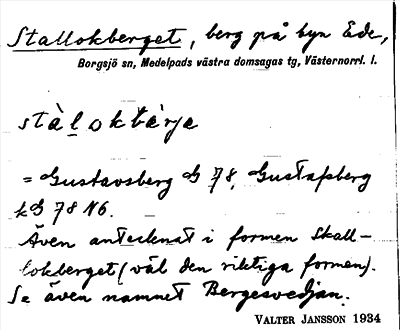 Stallokberget, berg på byn Ede,
Borgsjö sn, Medelpads västra domsagas tg, Västernorrl. l.
stàl̲okbärje
= Gustavsberg G 78, Gustafsberg
kG 78 N6.
Även antecknat i formen Skall-
lokberget (väl den riktiga formen).
Se även namnet Bergesvedjan.
VALTER JANSSON 1934